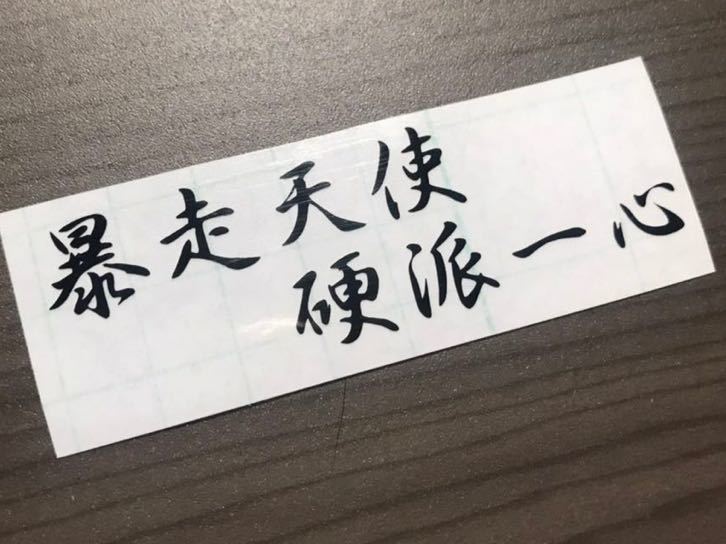 暴走天使
硬派一心